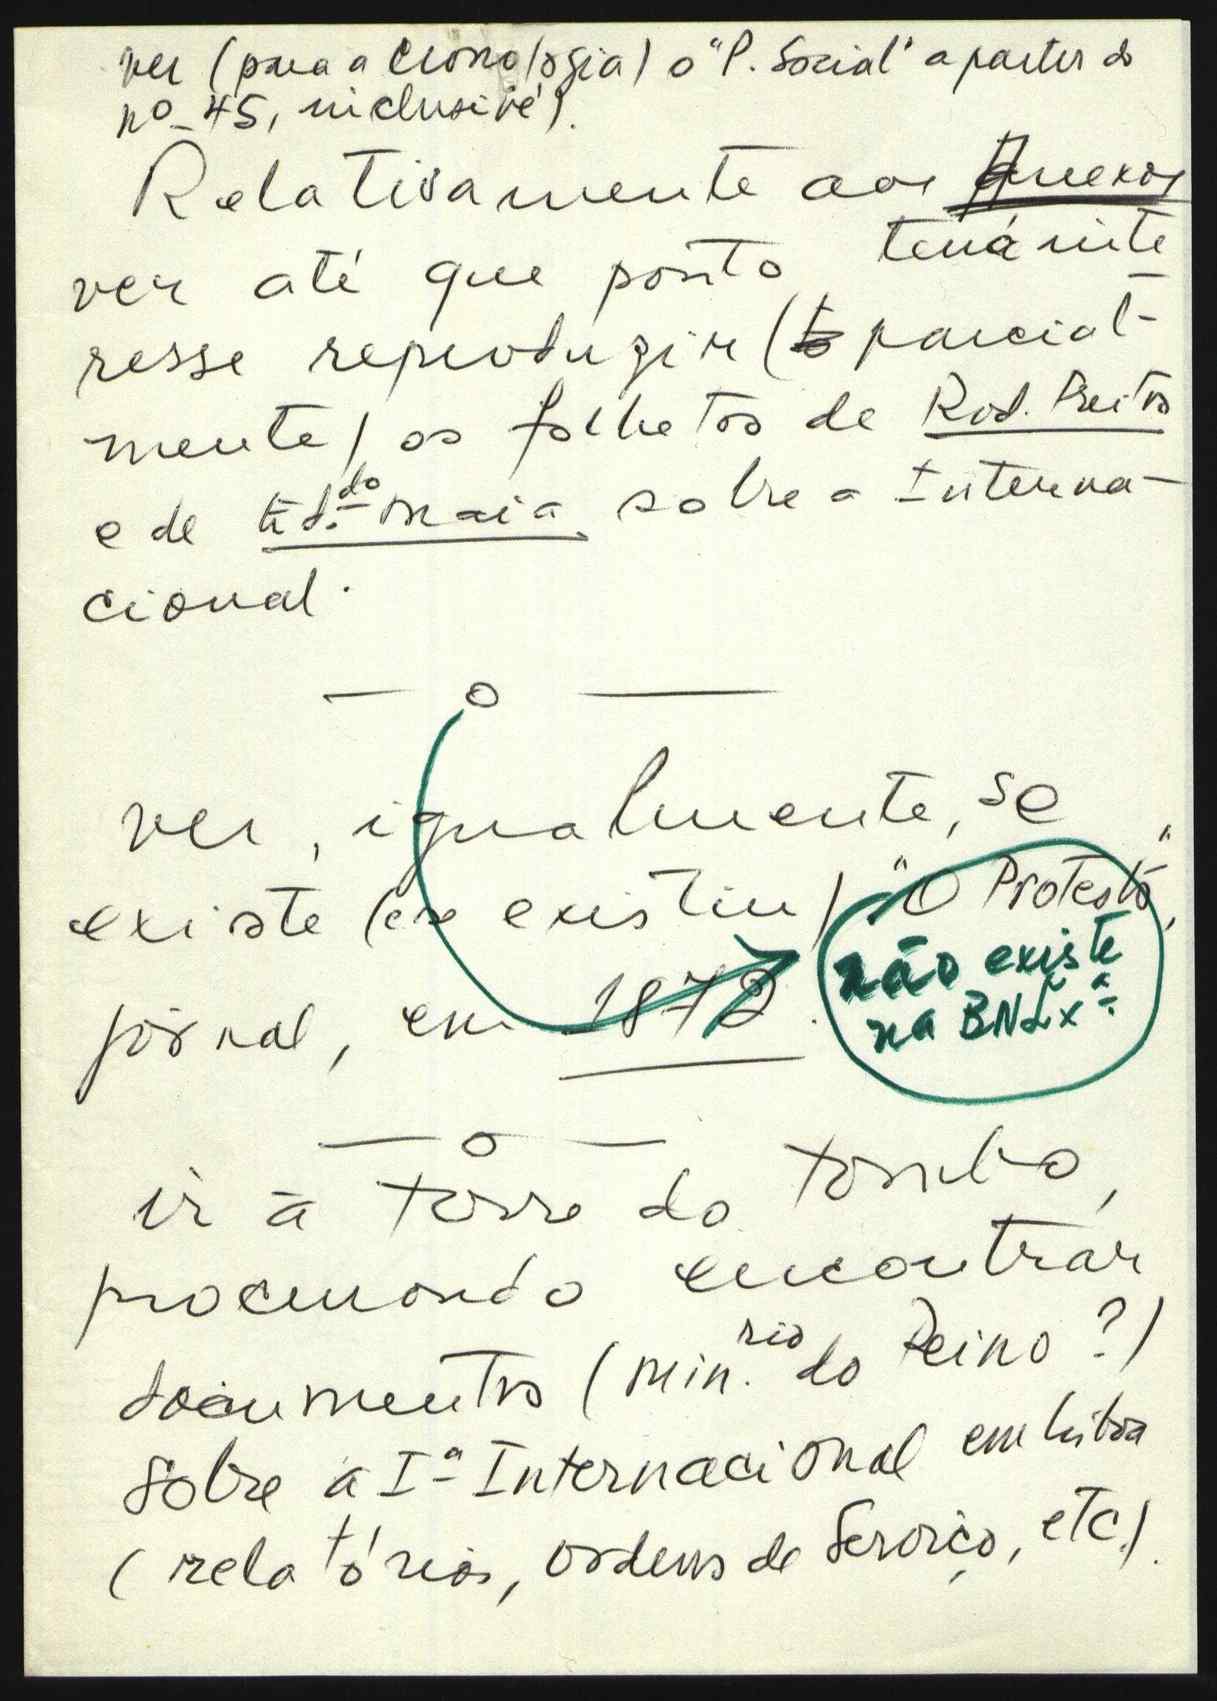 ver (para a Cronologia) o "P. Social" a partir do
nº 45, inclusivé).
Relativamente aos Anexos
ver até que ponto terá inte-
resse reproduzir (parcial-
mente) os folhetos de Rod. Freitas
e de Ed.do Maia sobre a Interna-
cional.
— o —
ver, igualmente, se
existe (e se existiu) "O Protesto",
jornal, em 1872.
não existe
na BNLxª
— o —
ir à torre do tombo,
procurando encontrar
documentos (Min.rio do Reino?)
sobre a Iª Internacional em Lisboa
(relatórios, ordens de Serviço, etc.).